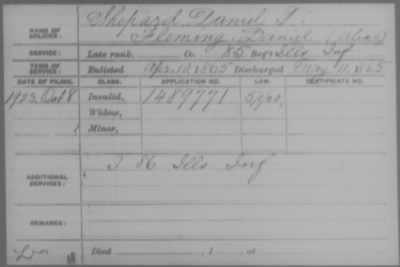 NAME OF SOLDIER: Shepard, Daniel T.
Flemming, Daniel (Alias)
SERVICE: Late rank, Co. 85 Reg't Ills Inf
TERM OF SERVICE: Enlisted Apr. 10, 1865 Discharged May 11, 1865
DATE OF FILING. CLASS. APPLICATION NO. LAW. CERTIFICATE NO.
1923 Oct 8 Invalid, 1489771
Widow,
Minor,
ADDITIONAL SERVICES: I 86 Ills Inf
REMARKS:
Died , 1 , at